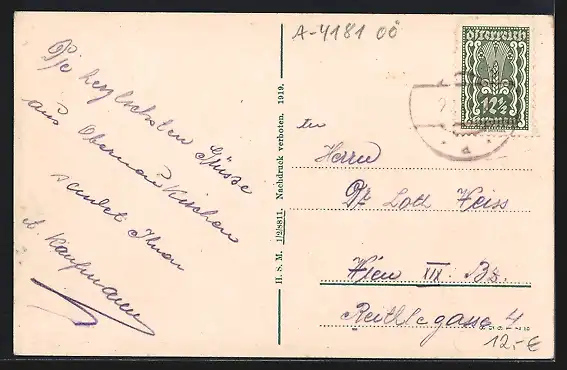 A-4181 OÖ
Die herzlichsten Grüsse
aus Oberneukirchen
sendet Ihnen
A. Kaufmann
H. S. M. 1/2/8811. Nachdruck verboten. 1919.
Österreich
12½
Herrn
Loth Weiss
Wien XIX. Bz.
Reithlegasse 4
12,-€